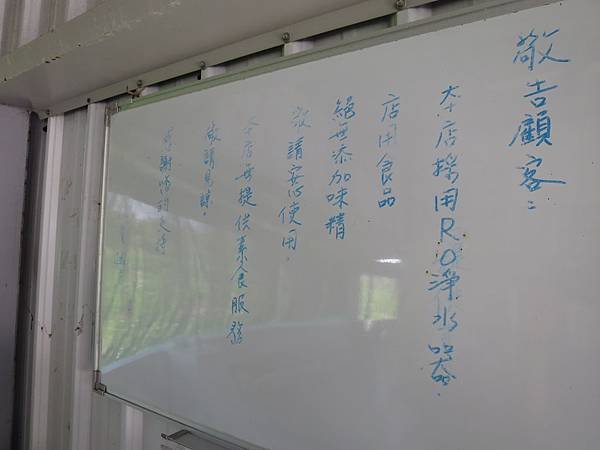 敬告顧客：
本店採用RO淨水器.
店用食品
絕無添加味精
敬請安心使用.
本店無提供素食服務
敬請見諒.
感謝您的支持